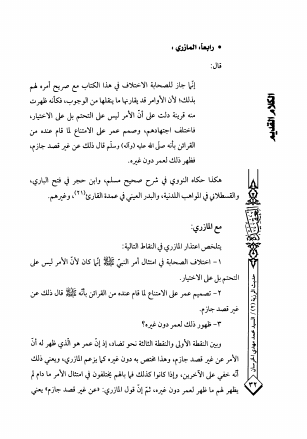 • رابعاً، المازري :
قال:
إنّما جاز للصحابة الاختلاف في هذا الكتاب مع صريح أمره لهم
بذلك؛ لأنّ الأوامر قد يقارنها ما ينقلها من الوجوب، فكأنّه ظهرت
منه قرينة دلت على أنّ الأمر ليس على التحتم بل على الاختيار،
فاختلف اجتهادهم، وصمم عمر على الامتناع لما قام عنده من
القرائن بأنّه صلى الله عليه (وآله) وسلّم قال ذلك عن غير قصد جازم،
فظهر ذلك لعمر دون غيره.
هكذا حكاه النووي في شرح صحيح مسلم، وابن حجر في فتح الباري،
والقسطلاني في المواهب اللدنية، والبدر العيني في عمدة القارئ(٢١)، وغيرهم.
مع المازري:
يتلخص اعتذار المازري في النقاط التالية:
١- اختلاف الصحابة في امتثال أمر النبيّ ﷺ إنّما كان لأنّ الأمر ليس على
التحتم بل على الاختيار.
٢- تصميم عمر على الامتناع لما قام عنده من القرائن بأنّه ﷺ قال ذلك عن
غير قصد جازم.
٣- ظهور ذلك لعمر دون غيره؟
وبين النقطة الأولى والنقطة الثالثة نحو تضاد، إذ إنّ عمر هو الّذي ظهر له أنّ
الأمر عن غير قصد جازم، وهذا مختص به دون غيره كما يزعم المازري، ويعني ذلك
أنّه خفي على الآخرين، وإذا كانوا كذلك فما بالهم يختلفون في امتثال الأمر ما دام لم
يظهر لهم ما ظهر لعمر دون غيره، ثمّ إنّ قول المازري: «عن غير قصد جازم» يعني
الكلام القديم
العقيدة
حديث الرزية (٢) / السيد محمد مهدي الخرسان
٣٢